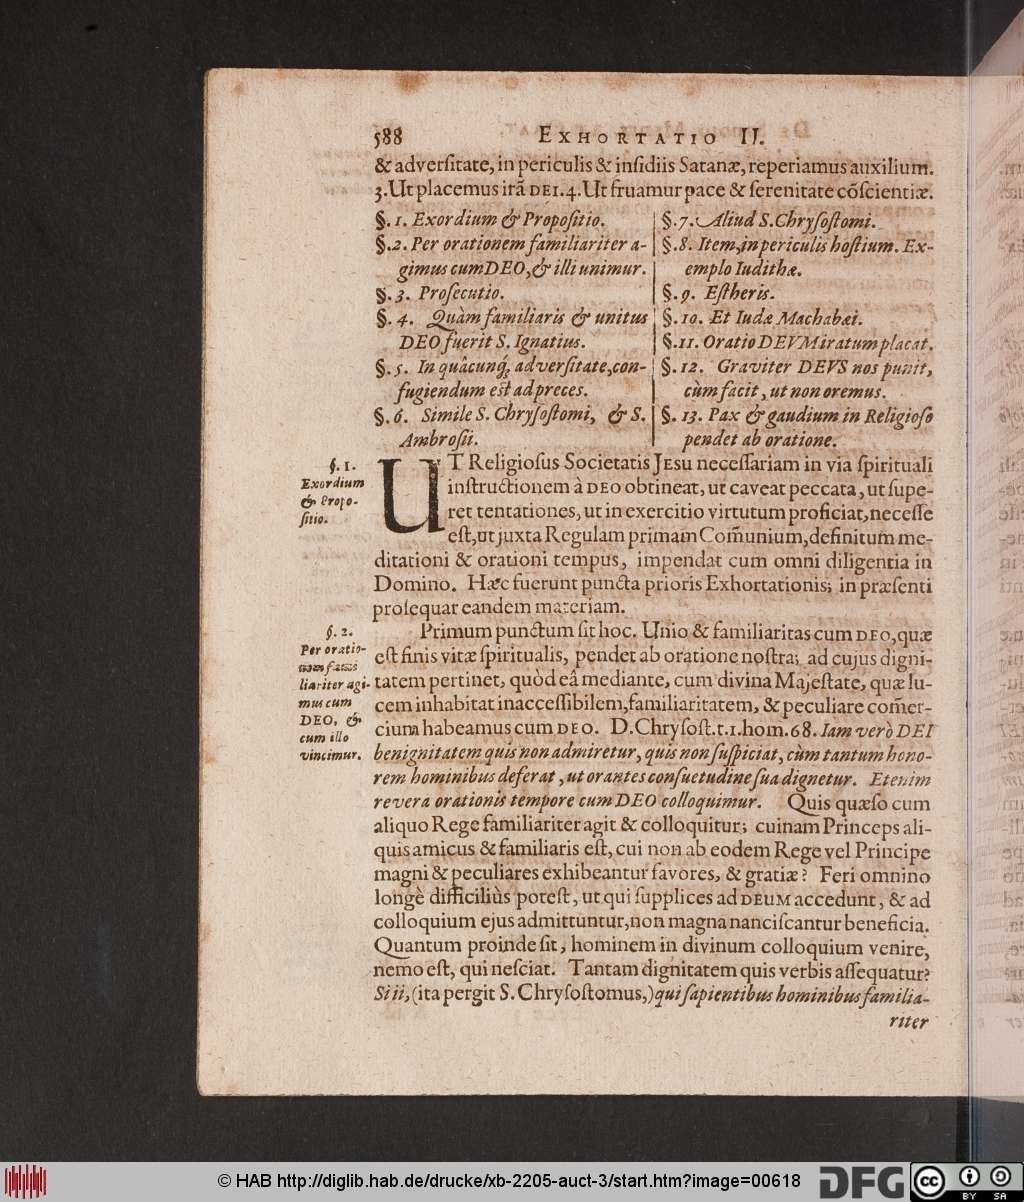 588 EXHORTATIO II.
& adversitate, in periculis & insidiis Satanæ, reperiamus auxilium.
3. Ut placemus irã DEI. 4. Ut fruamur pace & serenitate cõscientiæ.
§. 1. Exordium & Propositio.
§. 2. Per orationem familiariter a-
gimus cum DEO, & illi unimur.
§. 3. Prosecutio.
§. 4. Quàm familiaris & unitus
DEO fuerit S. Ignatius.
§. 5. In quâcunq; adversitate, con-
fugiendum est ad preces.
§. 6. Simile S. Chrysostomi, & S.
Ambrosii.
§. 7. Aliud S. Chrysostomi.
§. 8. Item, in periculis hostium. Ex-
emplo Iudithæ.
§. 9. Estheris.
§. 10. Et Iudæ Machabæi.
§. 11. Oratio DEUM iratum placat.
§. 12. Graviter DEUS nos punit,
cùm facit, ut non oremus.
§. 13. Pax & gaudium in Religioso
pendet ab oratione.
§. 1.
Exordium
& Propo-
sitio.
UT Religiosus Societatis JESU necessariam in via spirituali
instructionem à DEO obtineat, ut caveat peccata, ut supe-
ret tentationes, ut in exercitio virtutum proficiat, necesse
est, ut juxta Regulam primam Com̃unium, definitum me-
ditationi & orationi tempus, impendat cum omni diligentia in
Domino. Hæc fuerunt puncta prioris Exhortationis; in præsenti
prosequar eandem materiam.
§. 2.
Per oratio-
nem fami-
liariter agi-
mus cum
DEO, &
cum illo
vincimur.
Primum punctum sit hoc. Unio & familiaritas cum DEO, quæ
est finis vitæ spiritualis, pendet ab oratione nostra; ad cujus digni-
tatem pertinet, quòd eâ mediante, cum divina Majestate, quæ lu-
cem inhabitat inaccessibilem, familiaritatem, & peculiare com̃er-
cium habeamus cum DEO. D. Chrysost. t. 1. hom. 68. Iam verò DEI
benignitatem quis non admiretur, quis non suspiciat, cùm tantum hono-
rem hominibus deferat, ut orantes consuetudine sua dignetur. Etenim
revera orationis tempore cum DEO colloquimur. Quis quæso cum
aliquo Rege familiariter agit & colloquitur; cuinam Princeps ali-
quis amicus & familiaris est, cui non ab eodem Rege vel Principe
magni & peculiares exhibeantur favores, & gratiæ? Feri omnino
longè difficiliùs potest, ut qui supplices ad DEUM accedunt, & ad
colloquium ejus admittuntur, non magna nanciscantur beneficia.
Quantum proinde sit, hominem in divinum colloquium venire,
nemo est, qui nesciat. Tantam dignitatem quis verbis assequatur?
Si ii, (ita pergit S. Chrysostomus,) qui sapientibus hominibus familia-
riter
© HAB http://diglib.hab.de/drucke/xb-2205-auct-3/start.htm?image=00618
DFG
cc BY SA